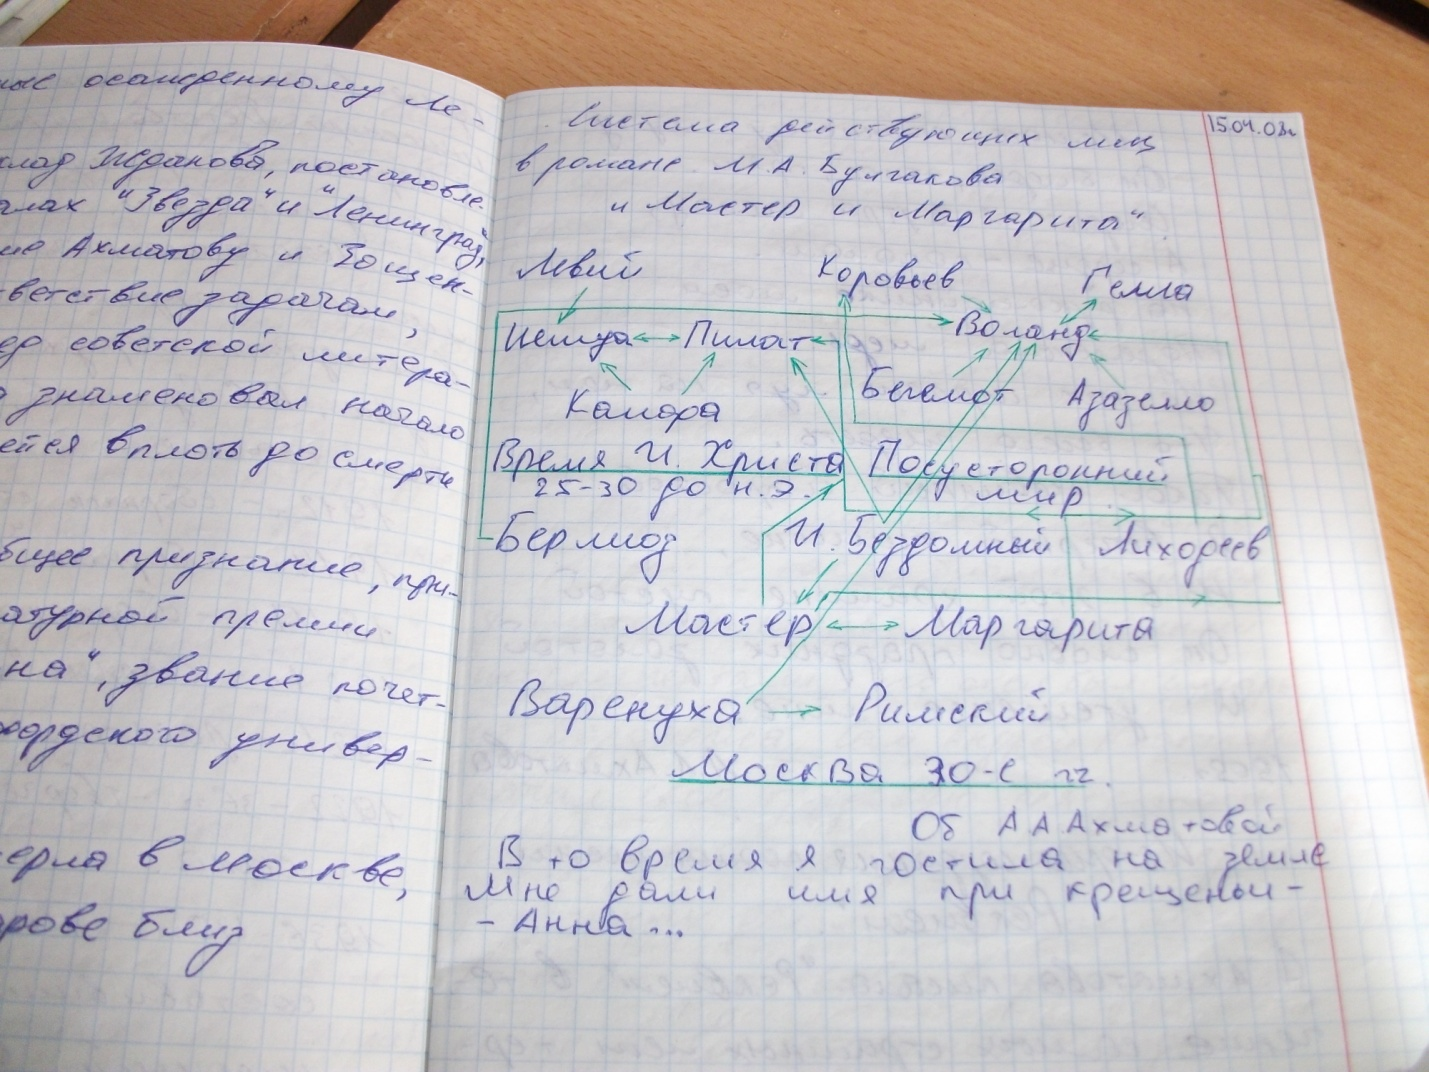 осажденному Ле-
Жданова, постановле-
"Звезда" и "Ленинград",
Ахматову и Зощен-
ветствие задачам,
советской литера-
знаменовал начало
вплоть до смерти
бщее признание, при-
атурной премии
на", звание почет-
фордского универ-
ерла в Москве,
рове близ
15.04.08г
Система действующих лиц
в романе М.А. Булгакова
"Мастер и Маргарита".
Левий Коровьев Гелла
Иешуа Пилат Воланд
Каифа Бегемот Азазелло
Время И. Христа Посусторонний
25-30 до н.э. мир
Берлиоз И. Бездомный Лиходеев
Мастер Маргарита
Варенуха Римский
Москва 30-е гг.
Об А А Ахматовой
В то время я гостила на земле
Мне дали имя при крещеньи -
- Анна...